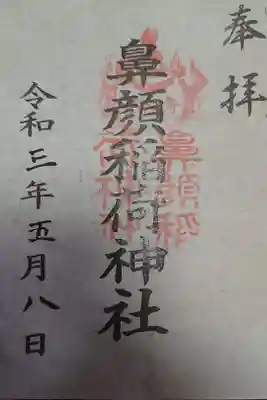 奉拝
鼻顔稲荷神社
令和三年五月八日